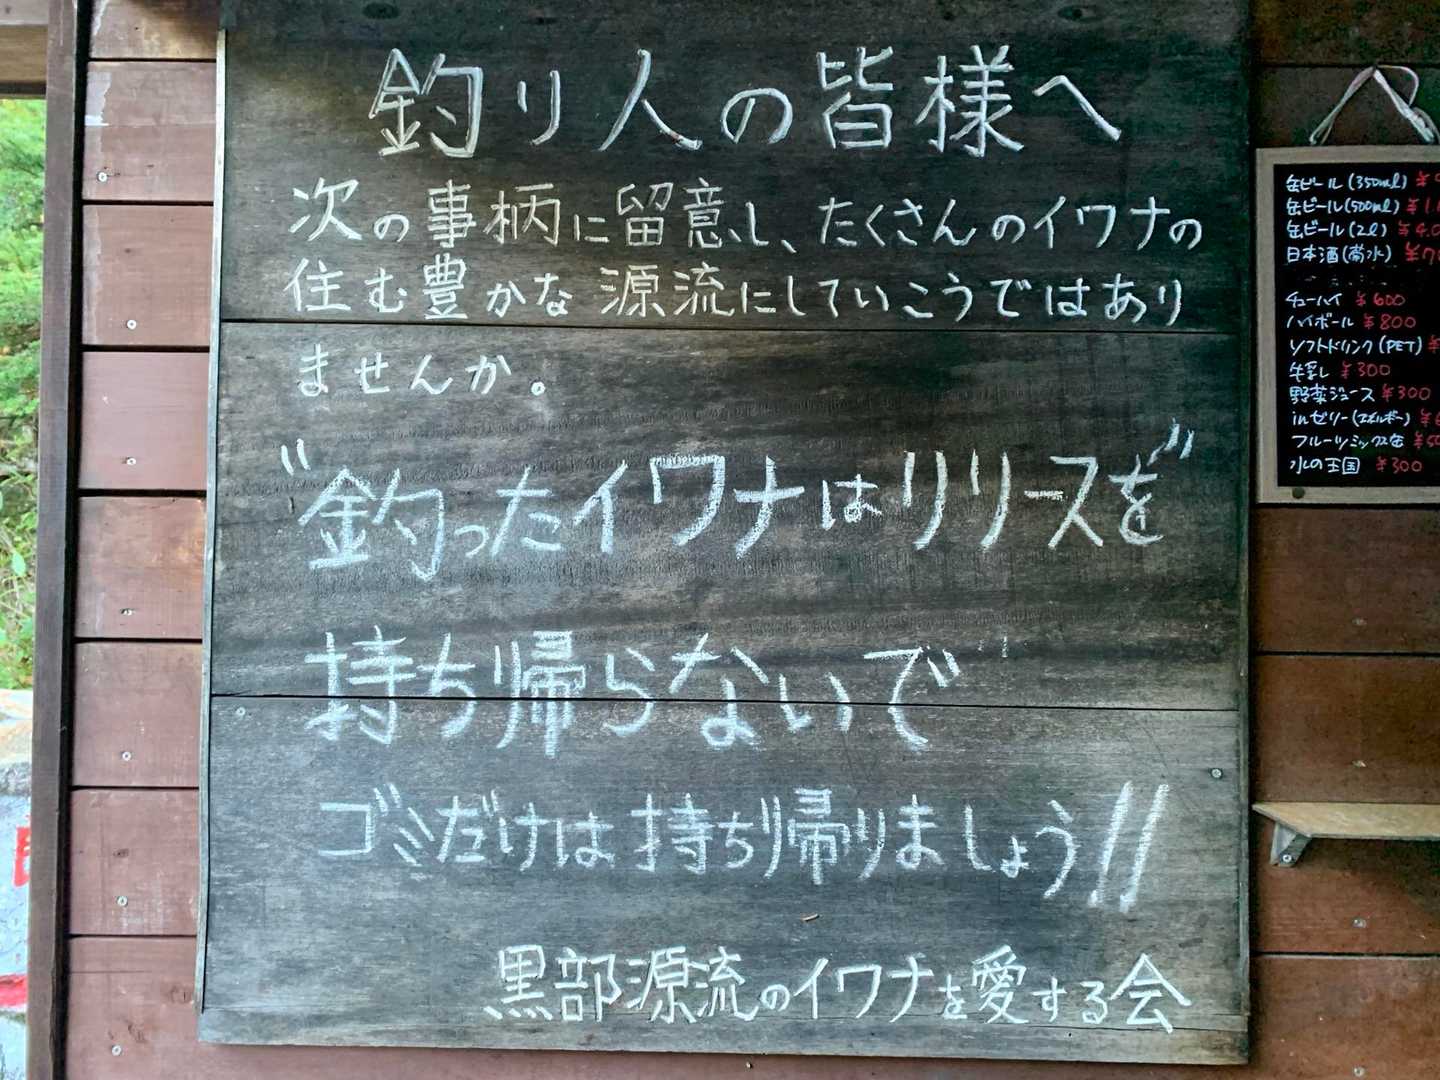 釣り人の皆様へ
次の事柄に留意し、たくさんのイワナの
住む豊かな源流にしていこうではあり
ませんか。
"釣ったイワナはリリースを"
持ち帰らないで
ゴミだけは持ち帰りましょう!!
黒部源流のイワナを愛する会
缶ビール(350ml)
缶ビール(500ml)
缶ビール(2l)
日本酒
チューハイ ¥600
ハイボール ¥800
ソフトドリンク(PET)
牛乳 ¥300
野菜ジュース ¥300
inゼリー
フルーツミックス缶
水の王国 ¥300